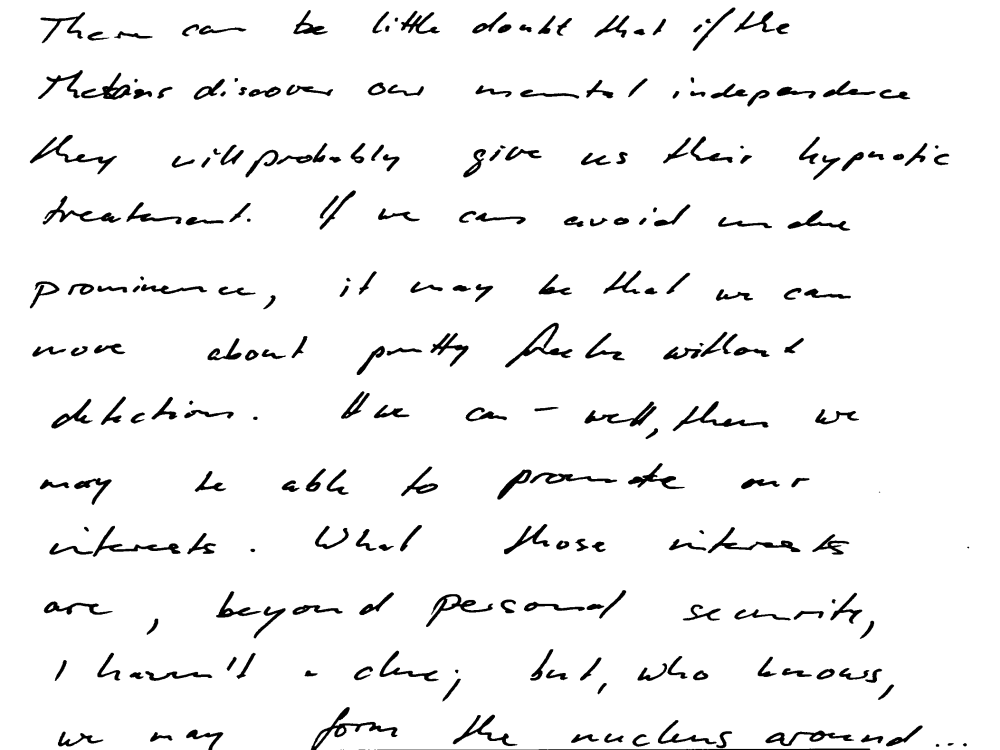 There can be little doubt that if the
Thetans discover our mental independence
they will probably give us their hypnotic
treatment. If we can avoid undue
prominence, it may be that we can
move about pretty freely without
detection. If we can – well, then we
may be able to promote our
interests. What those interests
are, beyond personal security,
I haven't a clue; but, who knows,
we may form the nucleus around...